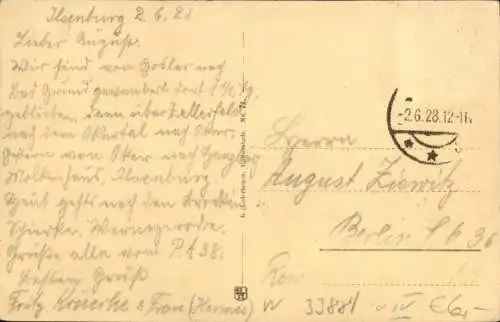 Ilsenburg 2.6.28
Lieber August.
Wir sind von Goslar nach
Bad Grund gewandert dort 1 ½ Tg.
geblieben dann über Zellerfeld
nach dem Okertal nach Oker.
Gestern von Oker nach Harzbg
Molkenhaus, Ilsenburg.
Heut gehts nach dem Brocken
Schierke. Wernigerode.
Grüße alle vom P.A 38.
Besten Gruß
Fritz & Frau (Hermes)
-2.6.28.12-
Herrn
August
Berlin S 36
W 33884 IV